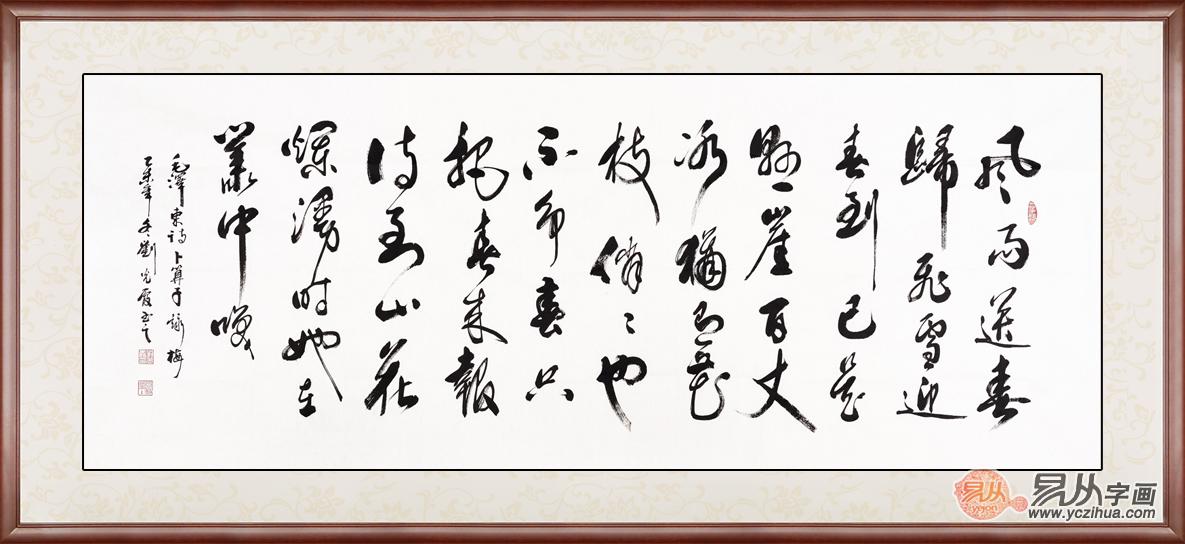 風雨送春
歸飛雪迎
春到已是
懸崖百丈
冰猶有花
枝俏〻也
不争春只
把春来報
待到山花
爛漫時她在
叢中咲
毛澤東詩卜算子詠梅
乙未年冬劉光霞書之
易从
易从字画
www.yczihua.com